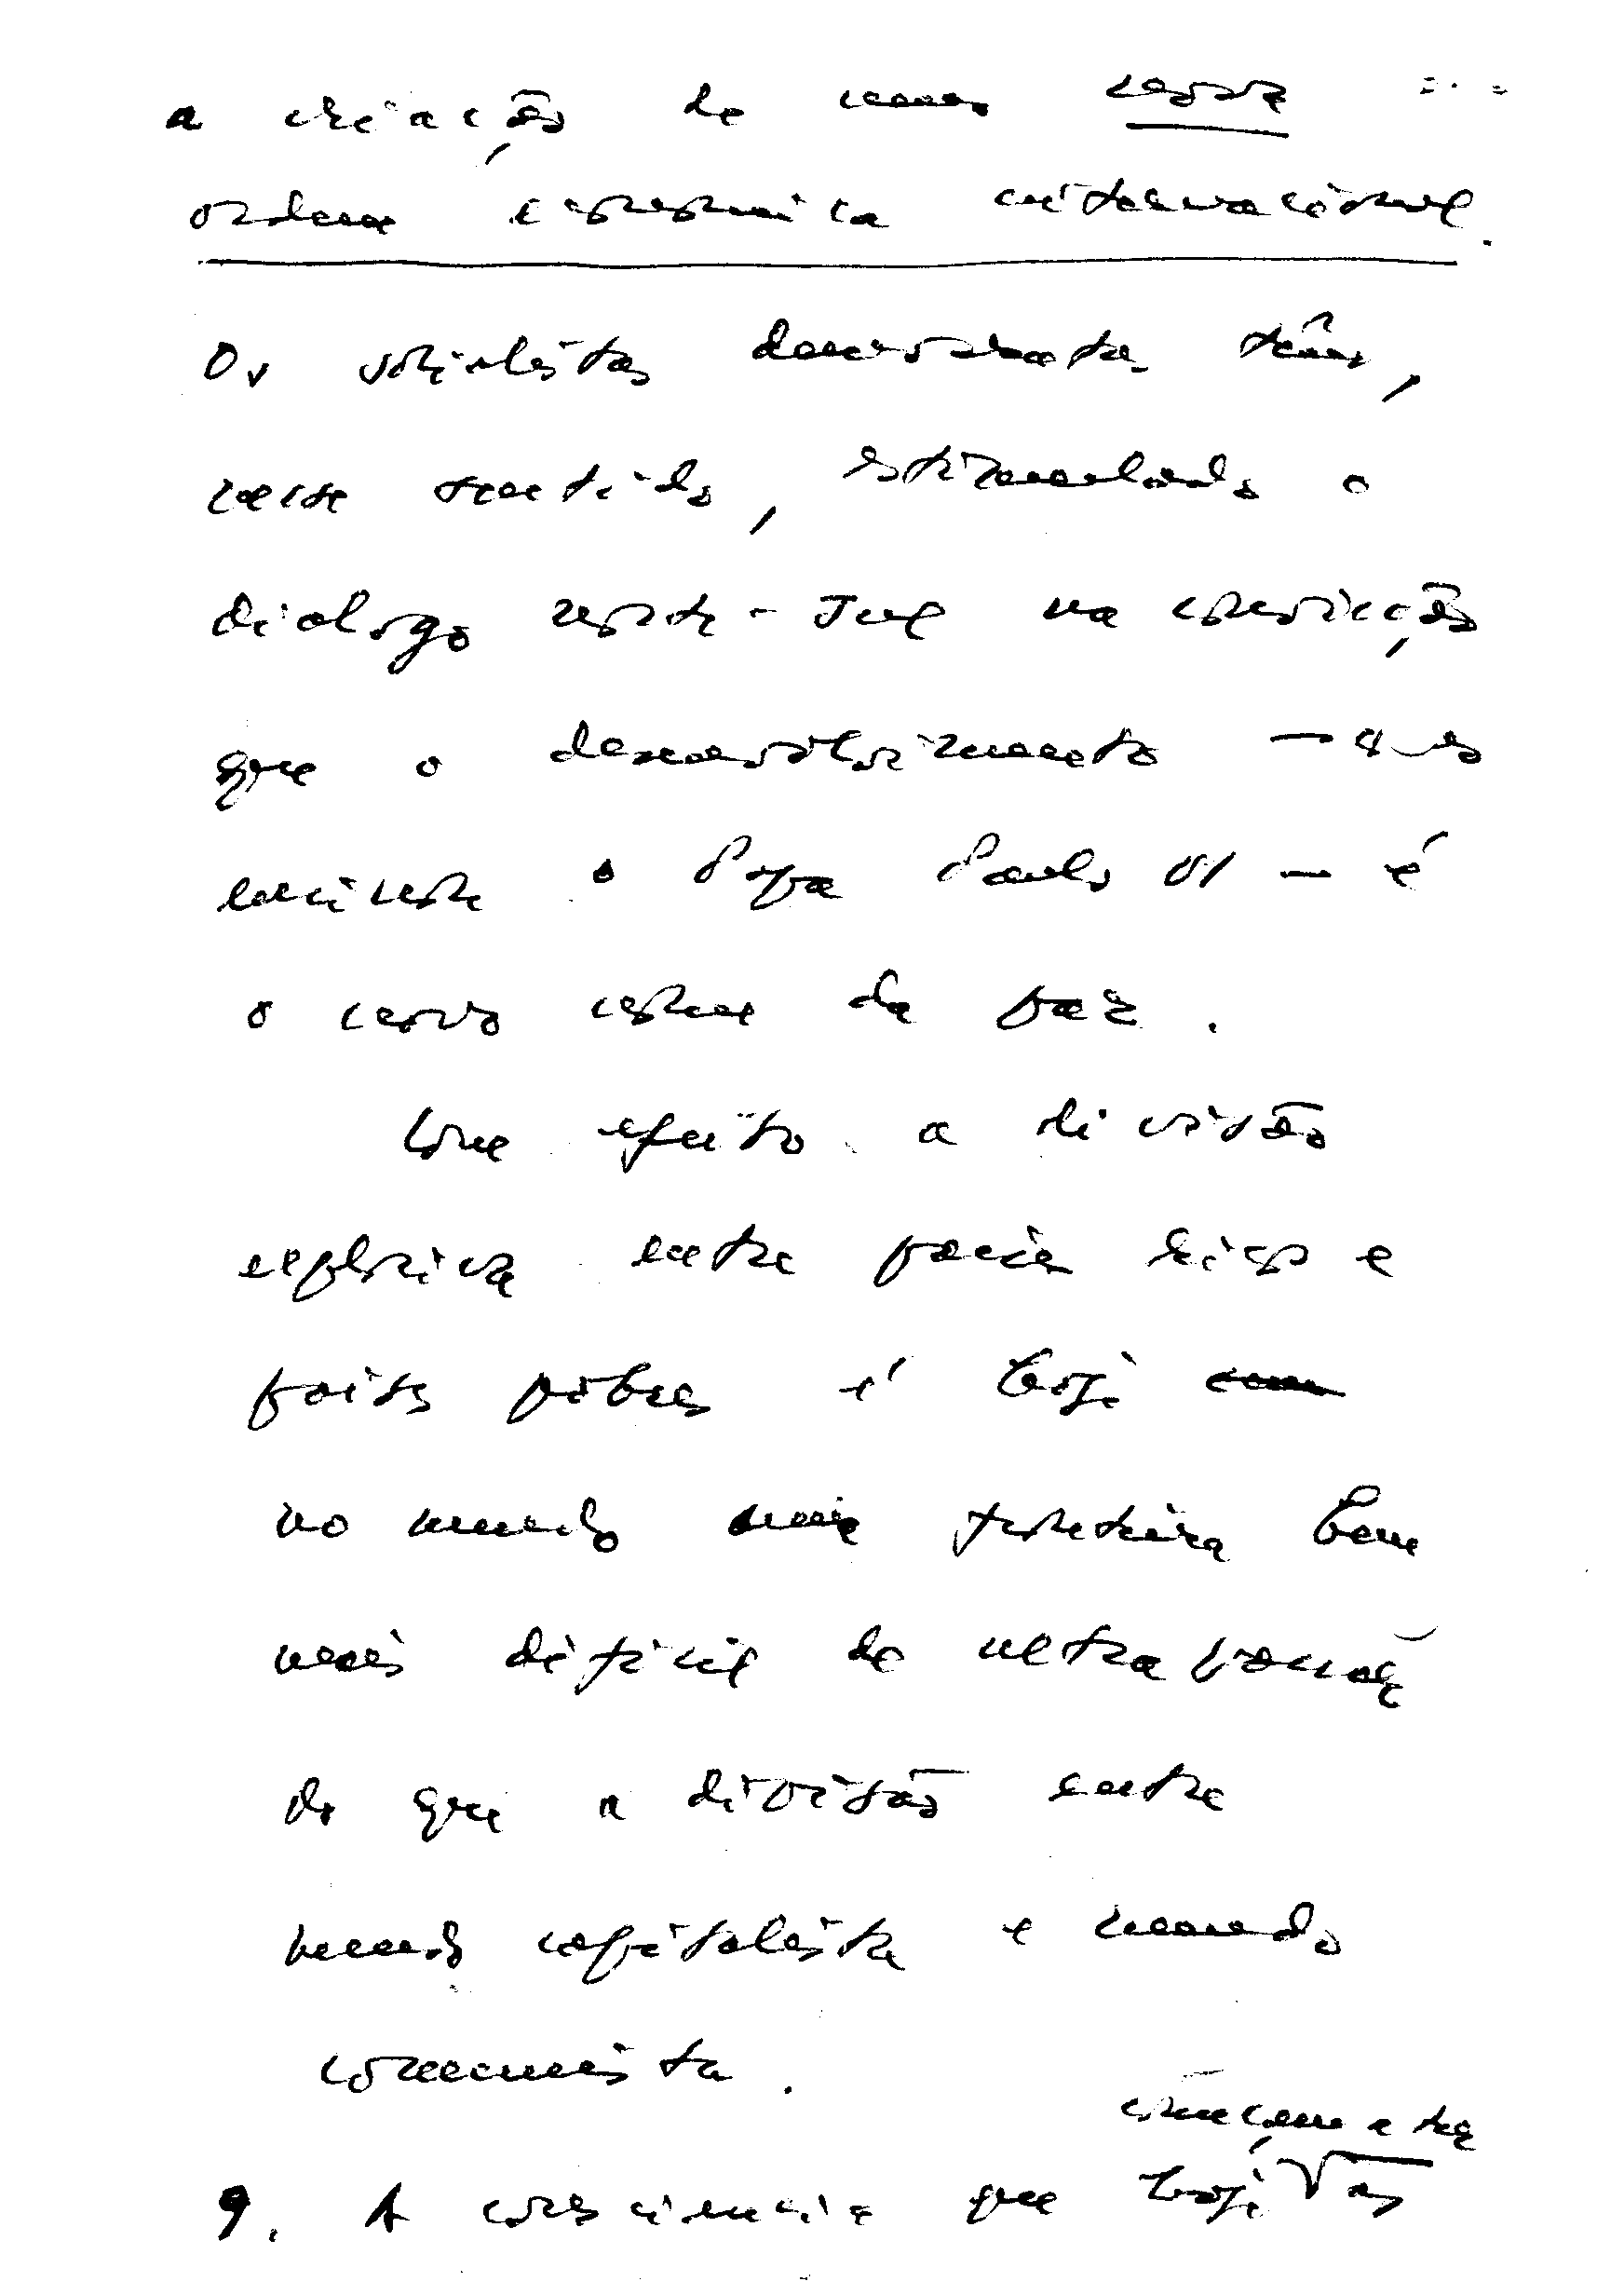 a criação de uma nova
ordem económica internacional.
Os socialistas democratas têm,
nesse sentido, estimulado o
dialogo norte-Sul na convicção
que o desenvolvimento —
o Papa Paulo VI — é
o novo nome da paz.
Com efeito a divisão
entre países ricos e
países pobres é hoje
no mundo uma fronteira bem
mais difícil de ultrapassar
do que a divisão entre
mundo capitalista e mundo
comunista.
começam a ter
9. A consciencia que hoje as